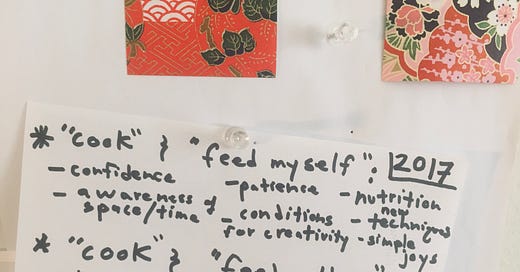 * "cook" } "feed myself": 2017
- confidence
- awareness of
space/time
- patience
- conditions
for creativity
- nutrition
- new
techniques
- simple
joys
* "cook" }